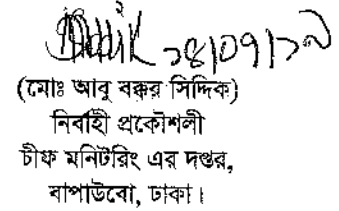 ১৪/০৭/১৯
(মোঃ আবু বক্কর সিদ্দিক)
নির্বাহী প্রকৌশলী
চীফ মনিটরিং এর দপ্তর,
বাপাউবো, ঢাকা।